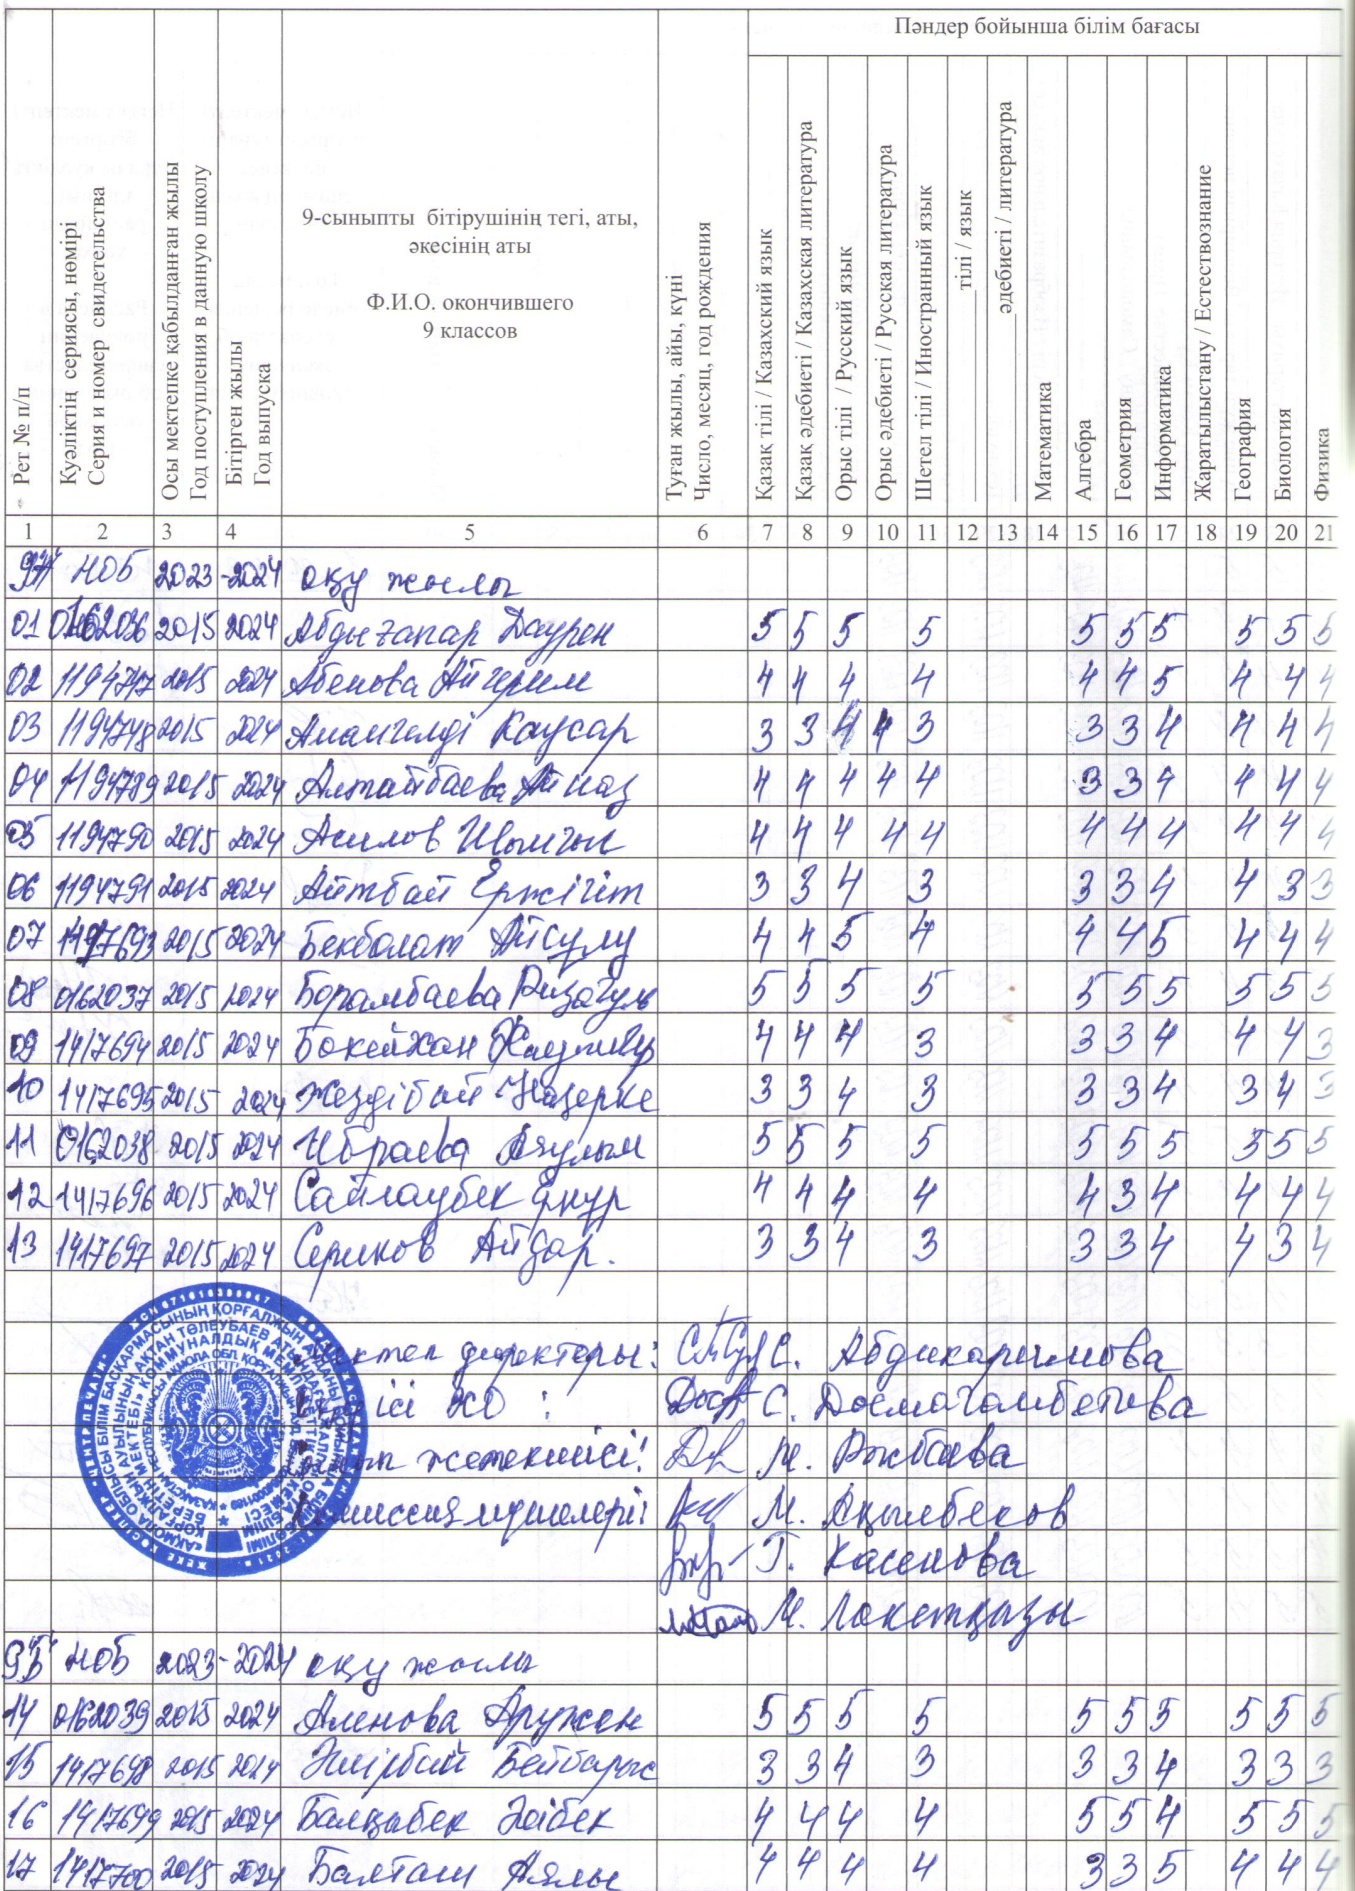 Пәндер бойынша білім бағасы
Рет № п/п
Куәліктің сериясы, нөмірі
Серия и номер свидетельства
Осы мектепке қабылданған жылы
Год поступления в данную школу
Бітірген жылы
Год выпуска
9-сыныпты бітірушінің тегі, аты,
әкесінің аты
Ф.И.О. окончившего
9 классов
Туған жылы, айы, күні
Число, месяц, год рождения
Қазақ тілі / Казахский язык
Қазақ әдебиеті / Казахская литература
Орыс тілі / Русский язык
Орыс әдебиеті / Русская литература
Шетел тілі / Иностранный язык
____________тілі / язык
____________әдебиеті / литература
Математика
Алгебра
Геометрия
Информатика
Жаратылыстану / Естествознание
География
Биология
Физика
1 2 3 4 5 6 7 8 9 10 11 12 13 14 15 16 17 18 19 20 21
НОБ 2023-2024 оқу жылы
01 0162036 2015 2024 Абдығапар Даурен 5 5 5 5 5 5 5 5 5 5
02 1194747 2015 2024 Абенова Айгерим 4 4 4 4 4 4 5 4 4 4
03 1194748 2015 2024 Амангелді Каусар 3 3 4 4 3 3 3 4 4 4 4
04 1194789 2015 2024 Алтайбаева Айназ 4 4 4 4 4 3 3 4 4 4 4
05 1194790 2015 2024 Асилов Шынғыс 4 4 4 4 4 4 4 4 4 4 4
06 1194791 2015 2024 Айтбай Ержігіт 3 3 4 3 3 3 4 4 3 3
07 1417693 2015 2024 Бекболат Айсұлу 4 4 5 4 4 4 5 4 4 4
08 0162037 2015 2024 Борамбаева Ризагуль 5 5 5 5 5 5 5 5 5 5
09 1417694 2015 2024 Бокейхан 4 4 4 3 3 3 4 4 4 3
10 1417695 2015 2024 Жездібай Назерке 3 3 4 3 3 3 4 3 4 3
11 0162038 2015 2024 Ибраева Аяулым 5 5 5 5 5 5 5 5 5 5
12 1417696 2015 2024 Сайлаубек Ернұр 4 4 4 4 4 3 4 4 4 4
13 1417697 2015 2024 Сериков Айдар. 3 3 4 3 3 3 4 4 3 4
мектеп директоры: С. Абдикаримова
ісі ЖО : С. Досмагамбетова
жетекшісі: М.
Комиссия мүшелері: М. Ақылбеков
Г. Касенова
М.
9Б НОБ 2023-2024 оқу жылы
14 0162039 2015 2024 Аменова Аружан 5 5 5 5 5 5 5 5 5 5
15 1417698 2015 2024 Әмірбай Бейбарыс 3 3 4 3 3 3 4 3 3 3
16 1417699 2015 2024 Балқыбек Әлібек 4 4 4 4 5 5 4 5 5 5
17 1417700 2015 2024 Балташ Аялы 4 4 4 4 3 3 5 4 4 4